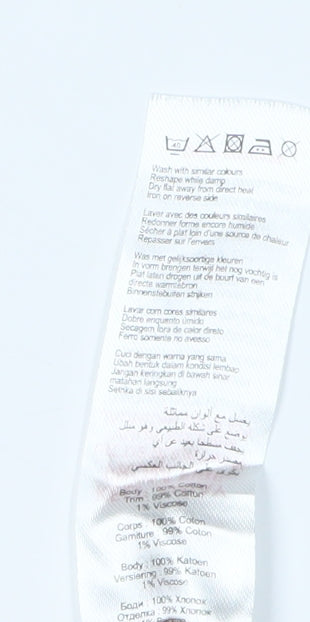 40
Wash with similar colours
Reshape while damp
Dry flat away from direct heat
Iron on reverse side
Laver avec des couleurs similaires
Redonner forme encore humide
Sécher à plat loin d'une source de chaleur
Repasser sur l'envers
Was met gelijksoortige kleuren
In vorm brengen terwijl het nog vochtig is
Plat laten drogen uit de buurt van een
directe warmtebron
Binnenstebuiten strijken
Lavar com cores similares
Dobre enquanto úmido
Secagem fora de calor direto
Ferro somente no avesso
Cuci dengan warna yang sama
Ubah bentuk dalam kondisi lembab
Jangan keringkan di bawah sinar
matahari langsung
Setrika di sisi sebaliknya
يغسل مع ألوان مماثلة
يوضع على شكله الطبيعي وهو مبلل
يجفف مسطحا بعيد عن أي
مصدر حرارة
يكوى على الجانب العكسي
Body : 100% Cotton
Trim : 99% Cotton
1% Viscose
Corps : 100% Coton
Garniture : 99% Coton
1% Viscose
Body : 100% Katoen
Versiering : 99% Katoen
1% Viscose
Боди : 100% Хлопок
Отделка : 99% Хлопок